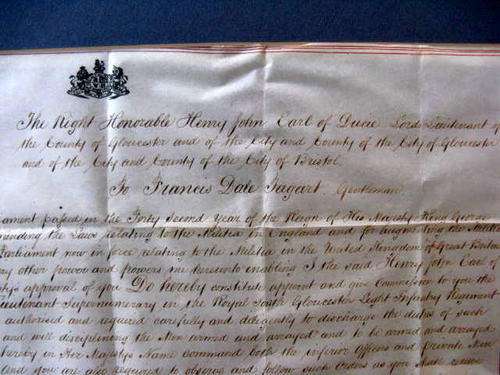 The Right Honorable Henry John Earl of Ducie Lord Lieutenant of
the County of Gloucester and of the City and County of the City of Gloucester
and of the City and County of the City of Bristol.
To Francis Dale Gentleman
ament passed in the Forty Second Year of the Reign of His Majesty King George
mending the Laws relating to the Militia in England and for augmenting the Militia
Parliament now in force relating to the Militia in the United Kingdom of Great Britain
ny other power and powers me hereunto enabling I the said Henry John Earl of
tys approval of you Do hereby constitute appoint and give Commission to you the
ieutenant Supernumerary in the Royal South Gloucester Light Infantry Regiment
authorised and required carefully and diligently to discharge the duties of such
and well disciplining the Men armed and arrayed and to be armed and arrayed
hereby in Her Majestys Name command both the inferior Officers and private Men
And you are also required to observe and follow such Orders as you shall receive